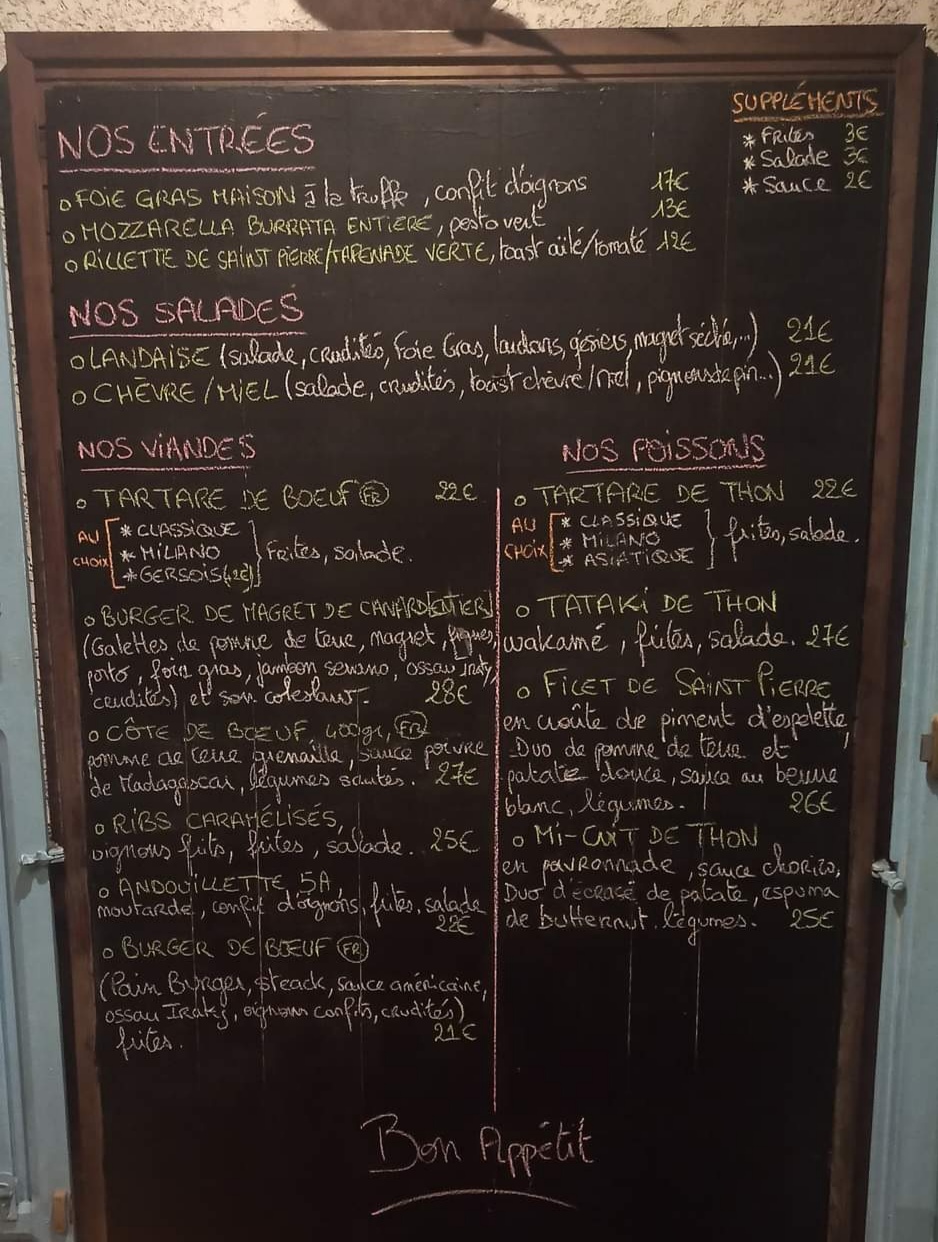 SUPPLÉMENTS
* FRites 3€
* Salade 3€
* Sauce 2€
NOS ENTRÉES
o FOIE GRAS MAISON à la truffe, confit d'oignons 17€
o MOZZARELLA BURRATA ENTIERE, pesto vert 13€
o RILLETTE DE SAINT PIERRE/TAPENADE VERTE, toast ailé/tomaté 12€
NOS SALADES
o LANDAISE (salade, crudités, Foie Gras, lardons, gésiers, magret séché,...) 21€
o CHÈVRE/MIEL (salade, crudités, toast chèvre/miel, pignons de pin...) 21€
NOS VIANDES
o TARTARE DE BOEUF FR 22€
AU CHOIX
* CLASSIQUE
* MILANO
* GERSOIS (+2€)
Frites, salade.
o BURGER DE MAGRET DE CANARD (ENTIER)
(Galettes de pomme de terre, magret, figues,
porto, foie gras, jambon serrano, ossau iraty,
crudités) et son coleslaw. 28€
o CÔTE DE BOEUF 400gr, FR
pomme de terre grenaille, sauce poivre
de Madagascar, légumes sautés. 27€
o RIBS CARAMÉLISÉS,
oignons frits, frites, salade. 25€
o ANDOUILLETTE 5A,
moutarde, confit d'oignons, frites, salade
22€
o BURGER DE BOEUF FR
(Pain Burger, steack, sauce américaine,
ossau Iraty, oignons confits, crudités)
frites. 21€
NOS POISSONS
o TARTARE DE THON 22€
AU CHOIX
* CLASSIQUE
* MILANO
* ASIATIQUE
frites, salade.
o TATAKI DE THON
wakamé, frites, salade. 27€
o FILET DE SAINT PIERRE
en croûte de piment d'espelette,
Duo de pomme de terre et
patate douce, sauce au beurre
blanc, légumes. 26€
o MI-CUIT DE THON
en poivronnade, sauce chorizo,
Duo d'écrasé de patate, espuma
de butternut, légumes. 25€
Bon Appétit